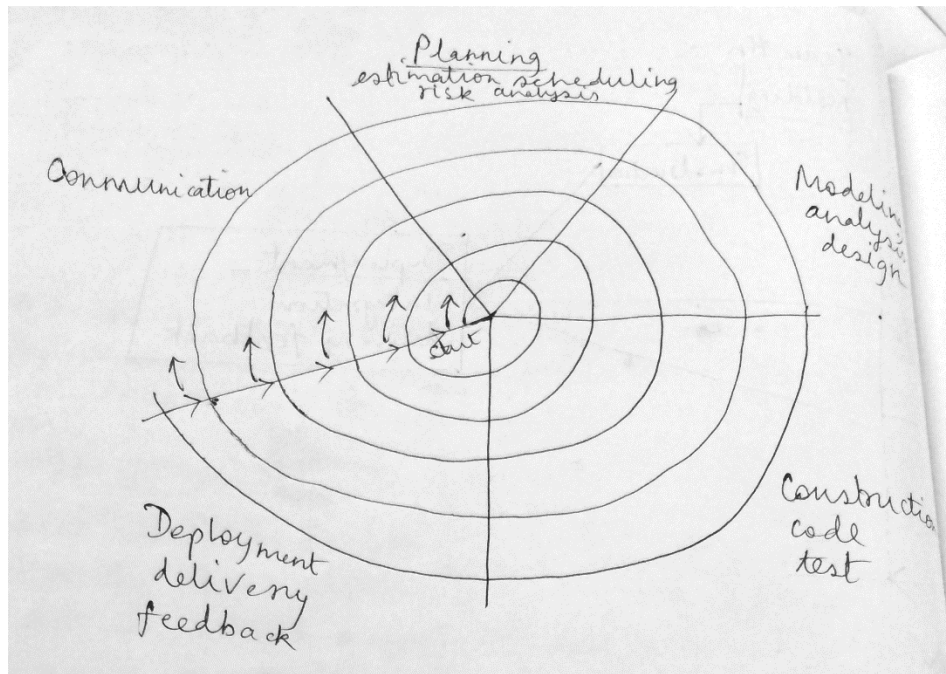 Planning
estimation scheduling
risk analysis
Communication
Modeling
analysis
design
start
Construction
code
test
Deployment
delivery
feedback